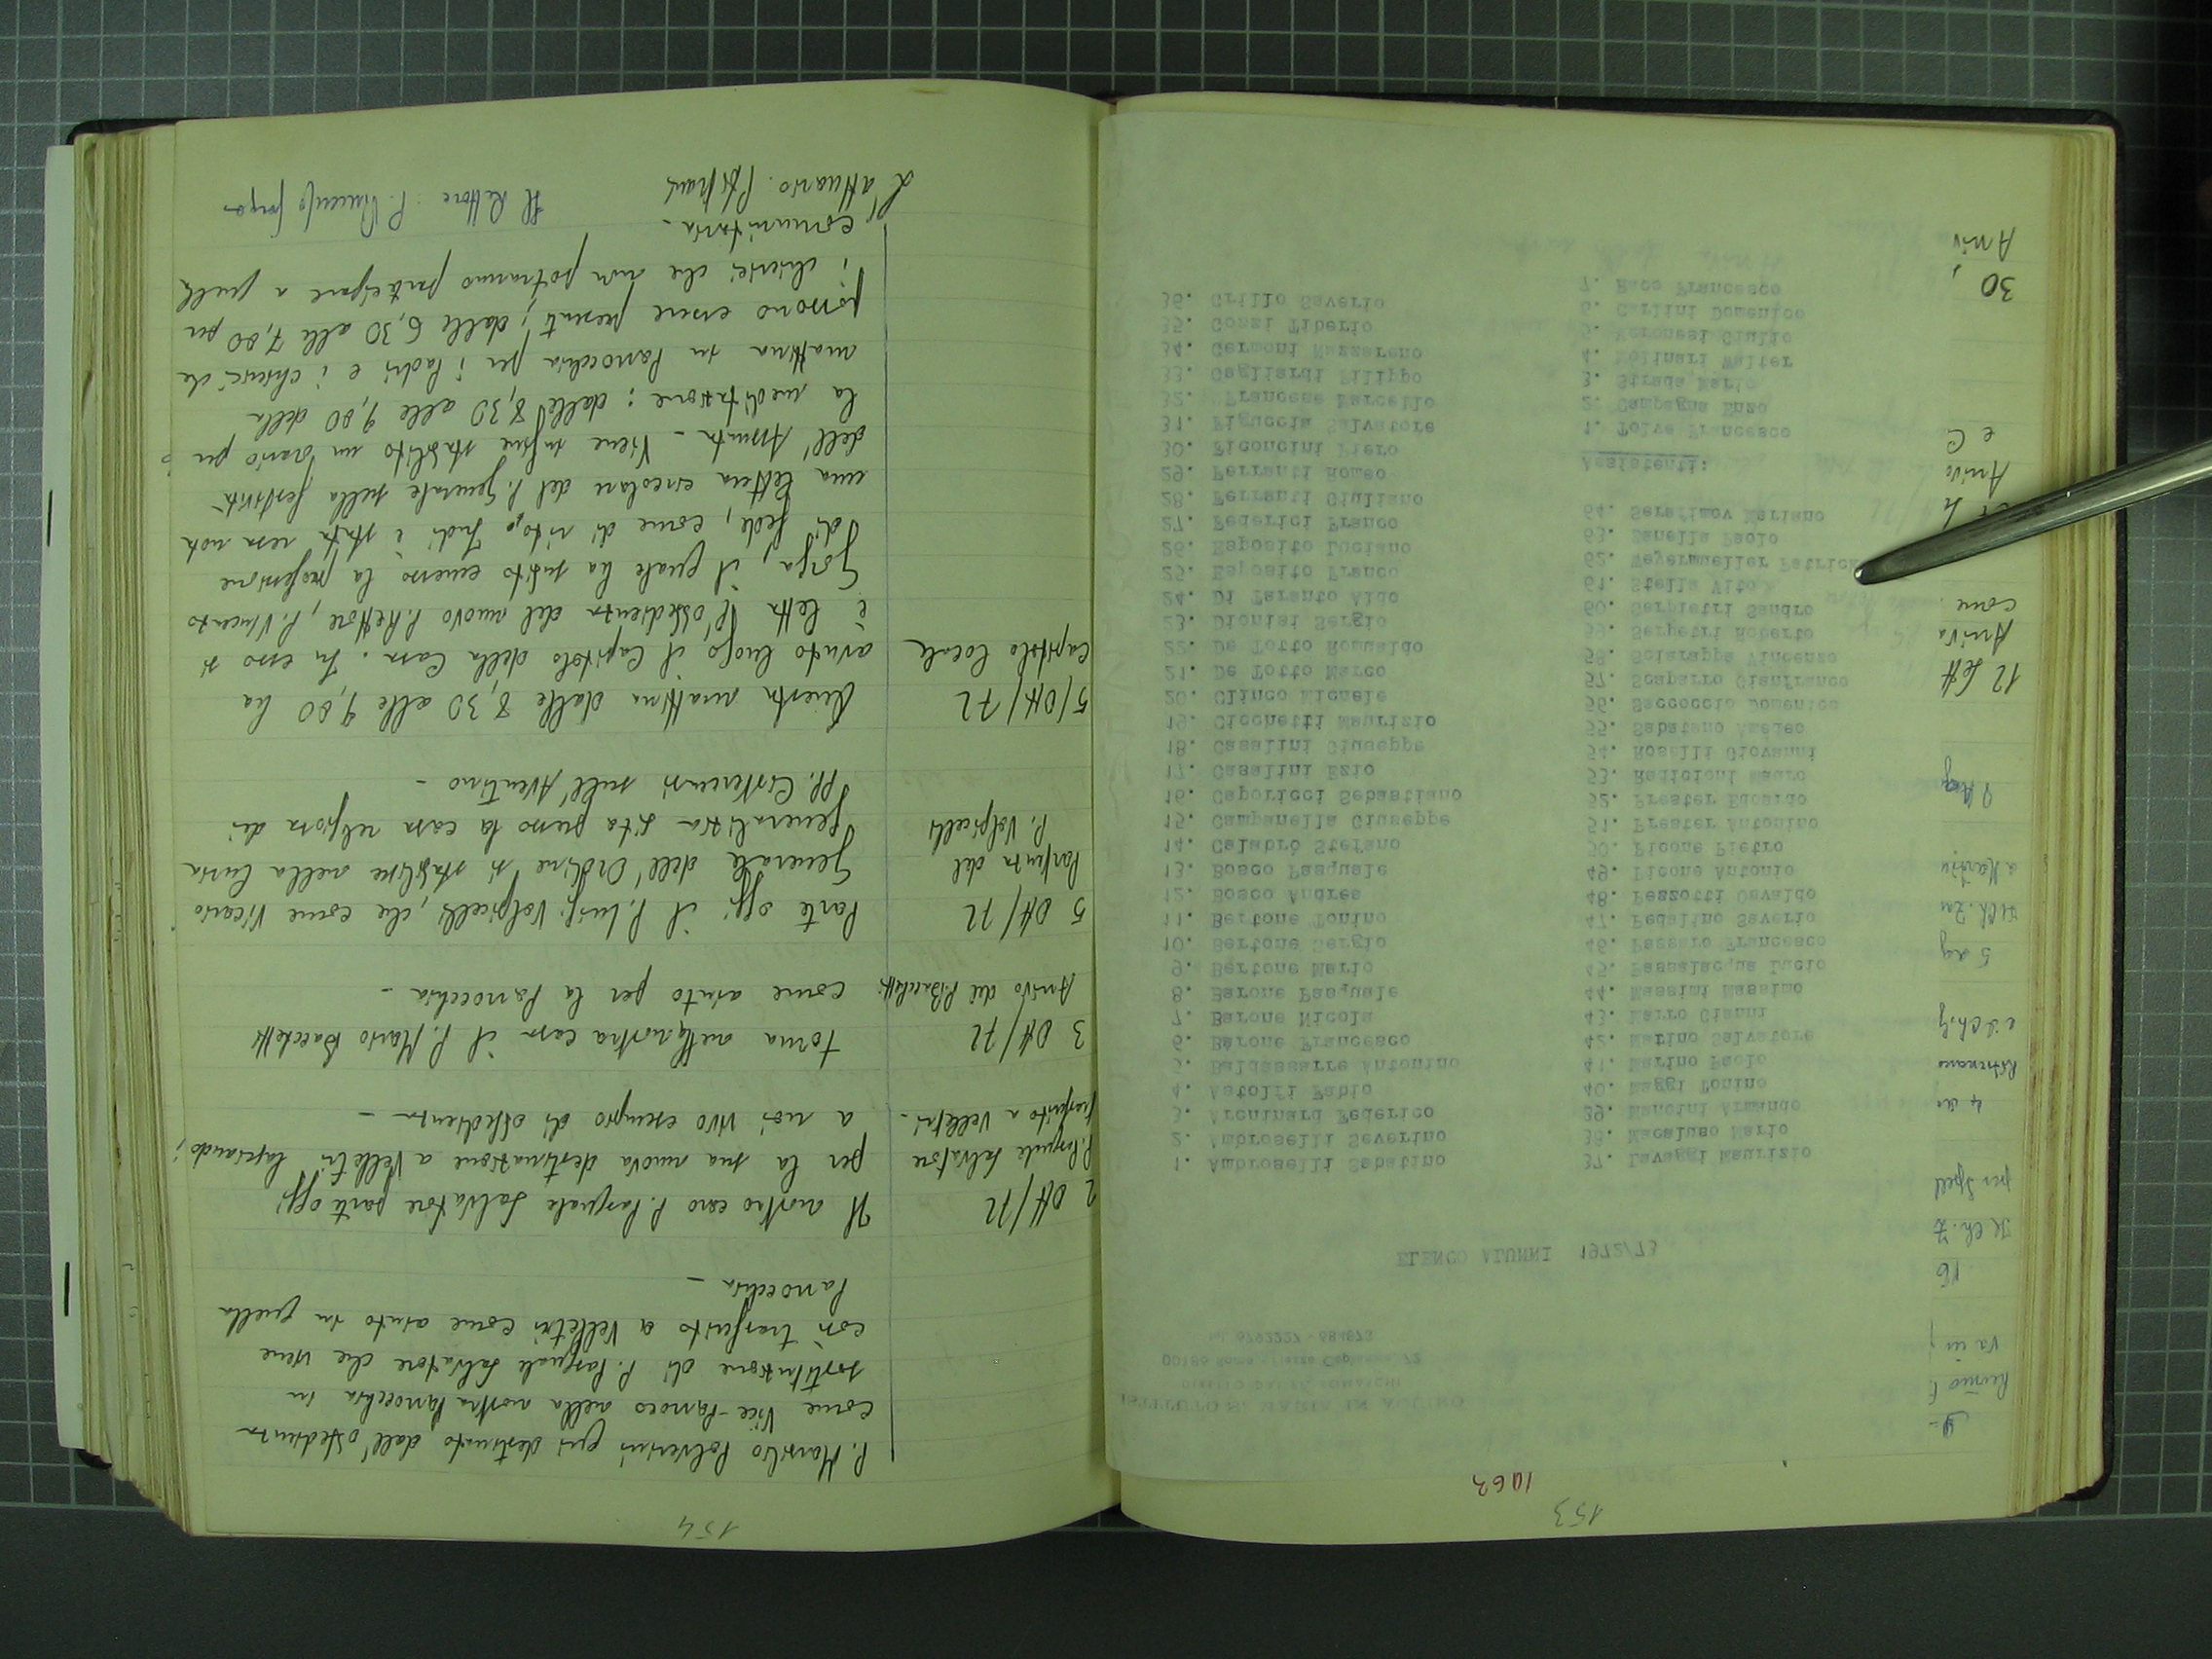 154
P. Marsilio Polverini già destinato dall'obbedienza
come Vice-Parroco nella nostra Parrocchia in
sostituzione di P. Pasquale Salvatore che viene
così trasferito a Velletri come aiuto in quella
Parrocchia -
2 Ott/72
P. Pasquale Salvatore
trasferito a Velletri -
Il nostro caro P. Pasquale Salvatore parte oggi
per la sua nuova destinazione a Velletri lasciando
a noi vivo esempio di obbedienza -
3 Ott/72
Arrivo del P. Bacchetti
torna nella nostra casa il P. Mario Bacchetti
come aiuto per la Parrocchia -
5 Ott/72
Partenza del
P. Volpicelli
Parte oggi il P. Luigi Volpicelli, che, come Vicario
Generale dell'Ordine si stabilisce nella Curia
Generalizia sita presso la casa religiosa dei
PP. Cistercensi sull'Aventino -
5/Ott/72
Capitolo locale
Questa mattina dalle 8,30 alle 9,00 ha
avuto luogo il Capitolo della Casa. In esso si
è letta l'obbedienza del nuovo P. Rettore, P. Vincenzo
Gorga, il quale ha subito emesso la professione
di fede, come di rito. Indi è stata resa nota
una lettera circolare del P. Generale nella festività
dell'Assunta - Viene infine stabilito un orario per
la meditazione: dalle 8,30 alle 9,00 della
mattina in Parrocchia per i Padri e i chierici che
possono essere presenti; dalle 6,30 alle 7,00 per
i chierici che non potranno partecipare a quella
comunitaria -
L'attuario
Il Rettore: P. Vincenzo Gorga
153
1063
ISTITUTO S. MARIA IN AQUIRO
DIRETTO DAI PP. SOMASCHI
00186 Roma - Piazza Capranica, 72
tel. 6792227 - 684673
ELENCO ALUNNI 1972/73
1. Ambroselli Sabatino
2. Ambroselli Severino
3. Arcninard Federico
4. Astolfi Fabio
5. Baldassarre Antonino
6. Barone Francesco
7. Barone Nicola
8. Barone Pasquale
9. Bertone Mario
10. Bertone Sergio
11. Bertone Tonino
12. Bosco Andrea
13. Bosco Pasquale
14. Calabrò Stefano
15. Campanella Giuseppe
16. Caporicci Sebastiano
17. Casalini Ezio
18. Casalini Giuseppe
19. Cicchetti Maurizio
20. Clinco Michele
21. De Totto Marco
22. De Totto Romualdo
23. Dionisi Sergio
24. Di Taranto Aldo
25. Esposito Franco
26. Esposito Luciano
27. Federici Franco
28. Ferranti Giuliano
29. Ferranti Romeo
30. Ficoncini Piero
31. Figuccia Salvatore
32. Francene Marcello
33. Gagliardi Filippo
34. Germoni Nazzareno
35. Gozzi Tiberio
36. Grillo Saverio
37. Lavaggi Maurizio
38. Macaluso Mario
39. Mancini Armando
40. Maggi Tonino
41. Marino Paolo
42. Marino Salvatore
43. Marro Gianni
44. Massimi Massimo
45. Passalacqua Lucio
46. Passaro Francesco
47. Pedalino Saverio
48. Pezzotti Osvaldo
49. Picone Antonio
50. Picone Pietro
51. Prester Antonino
52. Prester Edoardo
53. Raticioni Mauro
54. Roselli Giovanni
55. Sabatano Amedeo
56. Saccoccio Domenico
57. Scaparro Gianfranco
58. Sciarappa Vincenzo
59. Serpetri Roberto
60. Serpietri Sandro
61. Stella Vito
62. Vegermueller Patrick
63. Zanella Paolo
64. Serafimov Mariano
Assistenti:
1. Tolve Francesco
2. Campagna Enzo
3. Strada Mario
4. Molinari Walter
5. Veronesi Giulio
6. Carlini Domenico
7. Raco Francesco
va in
16
Il Ch. Z
per Spell
5 ag
2 Ag
12 Sett
Arriva
come
Arrivo
e C
30,
Arriv